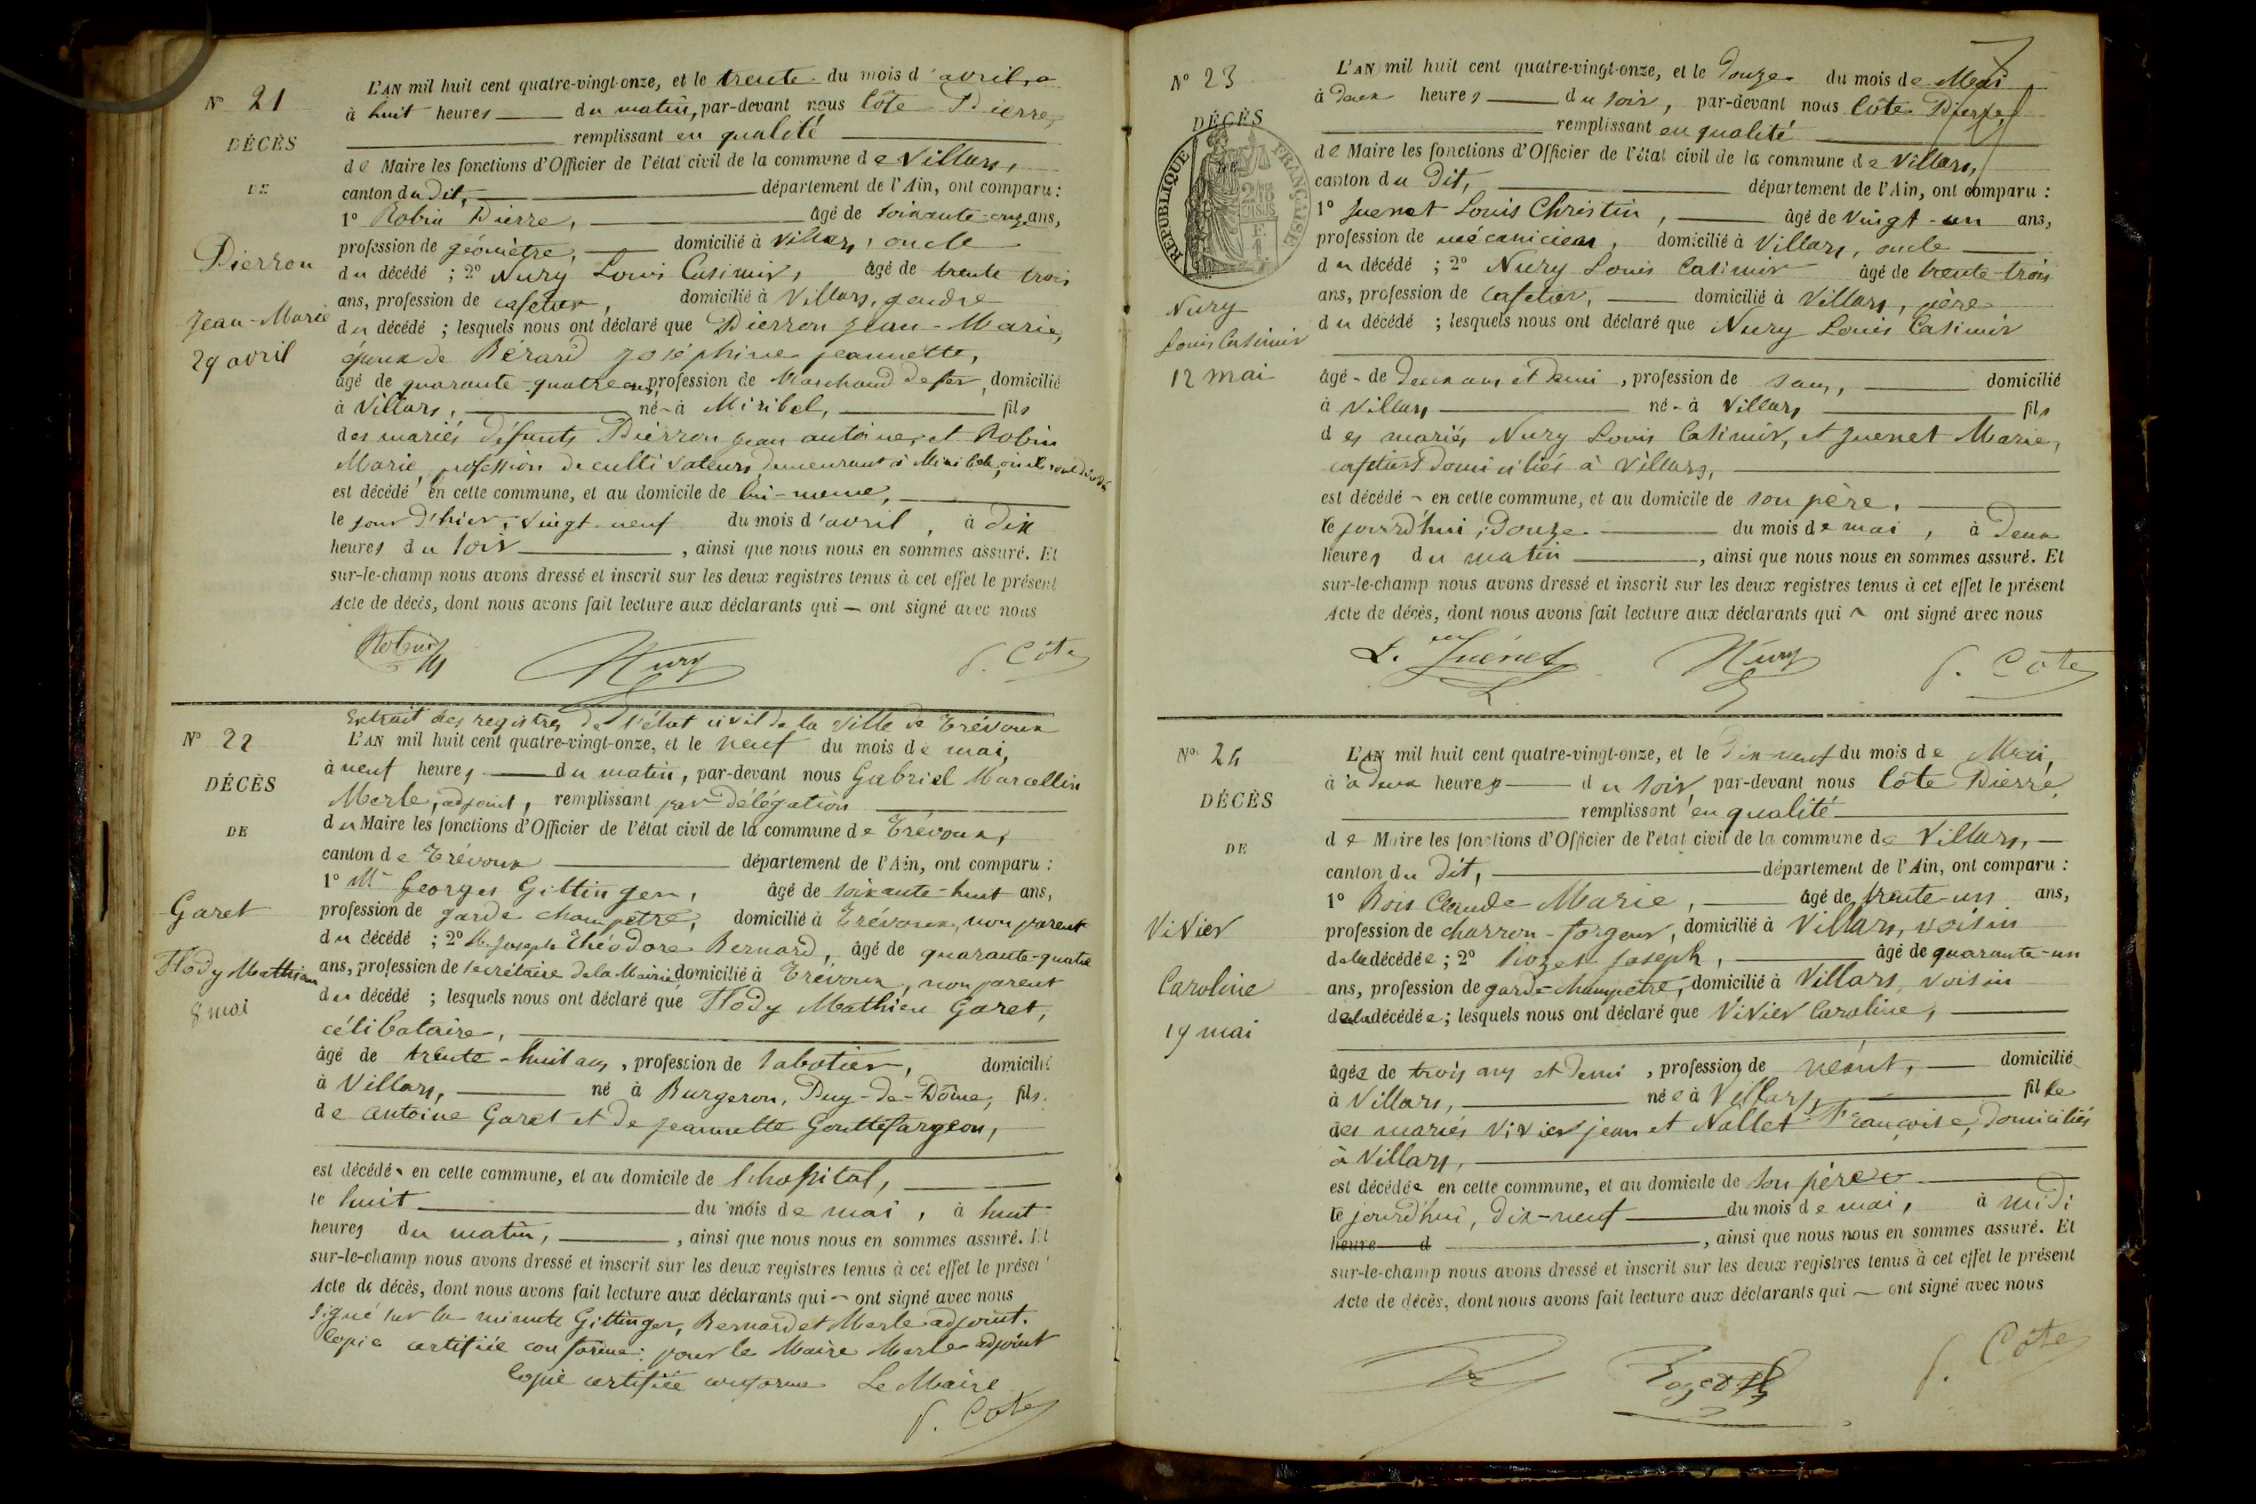 N° 21
DÉCÈS
DE
Pierron
Jean-Marie
29 avril
L'AN mil huit cent quatre-vingt-onze, et le trente du mois d'avril, a
à huit heures du matin, par-devant nous Côte Pierre,
remplissant en qualité
de Maire les fonctions d'Officier de l'état civil de la commune de Villars,
canton du Dit, département de l'Ain, ont comparu :
1° Robin Pierre, âgé de soixante-onze ans,
profession de géomètre, domicilié à Villars, oncle
du décédé ; 2° Nury Louis Casimir, âgé de trente trois
ans, profession de cafetier, domicilié à Villars, gendre
du décédé ; lesquels nous ont déclaré que Pierron Jean-Marie,
époux de Bérard Joséphine Jeannette,
âgé de quarante-quatre ans, profession de Marchand de fer, domicilié
à Villars, né à Miribel, fils
des mariés défunts Pierron Jean antoine, et Robin
Marie, profession de cultivateurs demeurant à Miribel, où ils sont décédés
est décédé en cette commune, et au domicile de lui-même,
le jour d'hier, vingt-neuf du mois d'avril, à dix
heures du soir, ainsi que nous nous en sommes assuré. Et
sur-le-champ nous avons dressé et inscrit sur les deux registres tenus à cet effet le présent
Acte de décès, dont nous avons fait lecture aux déclarants qui ont signé avec nous
Robin Nury P. Côte
N° 22
DÉCÈS
DE
Garet
Flody Mathieu
8 mai
Extrait des registres de l'état civil de la ville de Trévoux
L'AN mil huit cent quatre-vingt-onze, et le neuf du mois de mai,
à neuf heures du matin, par-devant nous Gabriel Marcellin
Merle, adjoint, remplissant par délégation
du Maire les fonctions d'Officier de l'état civil de la commune de Trévoux,
canton de Trévoux département de l'Ain, ont comparu :
1° Mr Georges Gittinger, âgé de soixante-huit ans,
profession de garde champêtre, domicilié à Trévoux, non parent
du décédé ; 2° Mr Joseph Théodore Bernard, âgé de quarante-quatre
ans, profession de secrétaire de la Mairie domicilié à Trévoux, non parent
du décédé ; lesquels nous ont déclaré que Flody Mathieu Garet,
célibataire,
âgé de trente-huit ans, profession de sabotier, domicilié
à Villars, né à Burgeron, Puy-de-Dôme, fils
de Antoine Garet et de Jeannette Gouttefargeon,
est décédé en cette commune, et au domicile de l'hopital,
le huit du mois de mai, à huit
heures du matin, ainsi que nous nous en sommes assuré. Et
sur-le-champ nous avons dressé et inscrit sur les deux registres tenus à cet effet le présen
Acte de décès, dont nous avons fait lecture aux déclarants qui ont signé avec nous
Signé sur la minute Gittinger, Bernard et Merle adjoint.
Copie certifiée conforme : pour le Maire Merle adjoint
Copie certifiée conforme Le Maire
P. Côte
N° 23
DÉCÈS
RÉPUBLIQUE FRANÇAISE
Nury
Louis Casimir
12 mai
L'AN mil huit cent quatre-vingt-onze, et le Douze du mois de Mai
à deux heures du soir, par-devant nous Côte Pierre,
remplissant en qualité
de Maire les fonctions d'Officier de l'état civil de la commune de Villars,
canton du Dit, département de l'Ain, ont comparu :
1° Juenet Louis Christin, âgé de vingt-un ans,
profession de mécanicien, domicilié à Villars, oncle
du décédé ; 2° Nury Louis Casimir âgé de trente-trois
ans, profession de cafetier, domicilié à Villars, père
du décédé ; lesquels nous ont déclaré que Nury Louis Casimir
âgé de Deux ans et Demi, profession de sans, domicilié
à Villars né à Villars fils
des mariés Nury Louis Casimir, et Juenet Marie,
cafetiers domiciliés à Villars,
est décédé en cette commune, et au domicile de son père,
le jourd'hui, Douze du mois de mai, à Deux
heures du matin, ainsi que nous nous en sommes assuré. Et
sur-le-champ nous avons dressé et inscrit sur les deux registres tenus à cet effet le présent
Acte de décès, dont nous avons fait lecture aux déclarants qui ont signé avec nous
L. Juénet Nury P. Côte
N° 24
DÉCÈS
DE
Vivier
Caroline
19 mai
L'AN mil huit cent quatre-vingt-onze, et le Dix-neuf du mois de Mai,
à deux heures du soir par-devant nous Côte Pierre,
remplissant en qualité
de Maire les fonctions d'Officier de l'état civil de la commune de Villars,
canton du Dit, département de l'Ain, ont comparu :
1° Bois Claude Marie, âgé de trente-un ans,
profession de charron-forgeur, domicilié à Villars, voisin
de la décédée ; 2° Joseph, âgé de quarante-un
ans, profession de garde-champetre, domicilié à Villars, voisin
de la décédée ; lesquels nous ont déclaré que Vivier Caroline,
âgée de trois ans et demi, profession de néant, domicilié
à Villars, née à Villars, fille
des mariés Vivier Jean et Nallet Françoise, Domiciliés
à Villars,
est décédée en cette commune, et au domicile de son père
le jourd'hui, dix-neuf du mois de mai, à midi
heure d, ainsi que nous nous en sommes assuré. Et
sur-le-champ nous avons dressé et inscrit sur les deux registres tenus à cet effet le présent
Acte de décès, dont nous avons fait lecture aux déclarants qui ont signé avec nous
P. Côte